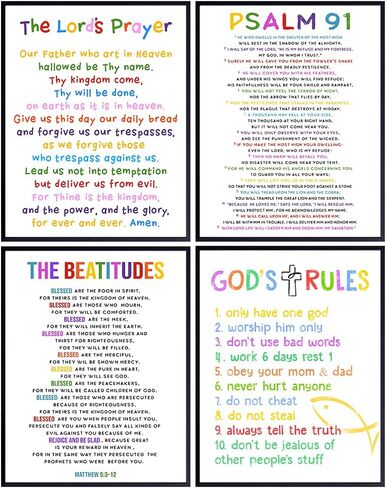 The Lord's Prayer
Our Father who art in Heaven
hallowed be Thy name.
Thy kingdom come,
Thy will be done,
on earth as it is in heaven.
Give us this day our daily bread
and forgive us our trespasses,
as we forgive those
who trespass against us.
Lead us not into temptation
but deliver us from evil.
For Thine is the kingdom,
and the power, and the glory,
for ever and ever. Amen.
PSALM 91
1 HE WHO DWELLS IN THE SHELTER OF THE MOST HIGH
WILL REST IN THE SHADOW OF THE ALMIGHTY.
2 I WILL SAY OF THE LORD, "HE IS MY REFUGE AND MY FORTRESS,
MY GOD, IN WHOM I TRUST."
3 SURELY HE WILL SAVE YOU FROM THE FOWLER'S SNARE
AND FROM THE DEADLY PESTILENCE.
4 HE WILL COVER YOU WITH HIS FEATHERS,
AND UNDER HIS WINGS YOU WILL FIND REFUGE;
HIS FAITHFULNESS WILL BE YOUR SHIELD AND RAMPART.
5 YOU WILL NOT FEEL THE TERROR OF NIGHT,
NOR THE ARROW THAT FLIES BY DAY,
6 NOR THE PESTILENCE THAT STALKS IN THE DARKNESS,
NOR THE PLAGUE THAT DESTROYS AT MIDDAY.
7 A THOUSAND MAY FALL AT YOUR SIDE,
TEN THOUSAND AT YOUR RIGHT HAND,
BUT IT WILL NOT COME NEAR YOU.
8 YOU WILL ONLY OBSERVE WITH YOUR EYES,
AND SEE THE PUNISHMENT OF THE WICKED.
9 IF YOU MAKE THE MOST HIGH YOUR DWELLING-
EVEN THE LORD, WHO IS MY REFUGE-
10 THEN NO HARM WILL BEFALL YOU,
NO DISASTER WILL COME NEAR YOUR TENT.
11 FOR HE WILL COMMAND HIS ANGELS CONCERNING YOU
TO GUARD YOU IN ALL YOUR WAYS;
12 THEY WILL LIFT YOU UP IN THEIR HANDS,
SO THAT YOU WILL NOT STRIKE YOUR FOOT AGAINST A STONE
13 YOU WILL TREAD UPON THE LION AND THE COBRA,
YOU WILL TRAMPLE THE GREAT LION AND THE SERPENT.
14 "BECAUSE HE LOVES ME," SAYS THE LORD, "I WILL RESCUE HIM;
I WILL PROTECT HIM, FOR HE ACKNOWLEDGES MY NAME.
15 HE WILL CALL UPON ME, AND I WILL ANSWER HIM;
I WILL BE WITH HIM IN TROUBLE, I WILL DELIVER HIM AND HONOR HIM.
16 WITH LONG LIFE WILL I SATISFY HIM AND SHOW HIM MY SALVATION"
THE BEATITUDES
BLESSED ARE THE POOR IN SPIRIT,
FOR THEIRS IS THE KINGDOM OF HEAVEN.
BLESSED ARE THOSE WHO MOURN,
FOR THEY WILL BE COMFORTED.
BLESSED ARE THE MEEK,
FOR THEY WILL INHERIT THE EARTH.
BLESSED ARE THOSE WHO HUNGER AND
THIRST FOR RIGHTEOUSNESS,
FOR THEY WILL BE FILLED.
BLESSED ARE THE MERCIFUL,
FOR THEY WILL BE SHOWN MERCY.
BLESSED ARE THE PURE IN HEART,
FOR THEY WILL SEE GOD.
BLESSED ARE THE PEACEMAKERS,
FOR THEY WILL BE CALLED CHILDREN OF GOD.
BLESSED ARE THOSE WHO ARE PERSECUTED
BECAUSE OF RIGHTEOUSNESS,
FOR THEIRS IS THE KINGDOM OF HEAVEN.
BLESSED ARE YOU WHEN PEOPLE INSULT YOU,
PERSECUTE YOU AND FALSELY SAY ALL KINDS OF
EVIL AGAINST YOU BECAUSE OF ME.
REJOICE AND BE GLAD, BECAUSE GREAT
IS YOUR REWARD IN HEAVEN,
FOR IN THE SAME WAY THEY PERSECUTED THE
PROPHETS WHO WERE BEFORE YOU.
MATTHEW 5:3-12
GOD'S RULES
1. only have one god
2. worship him only
3. don't use bad words
4. work 6 days rest 1
5. obey your mom & dad
6. never hurt anyone
7. do not cheat
8. do not steal
9. always tell the truth
10. don't be jealous of
other people's stuff